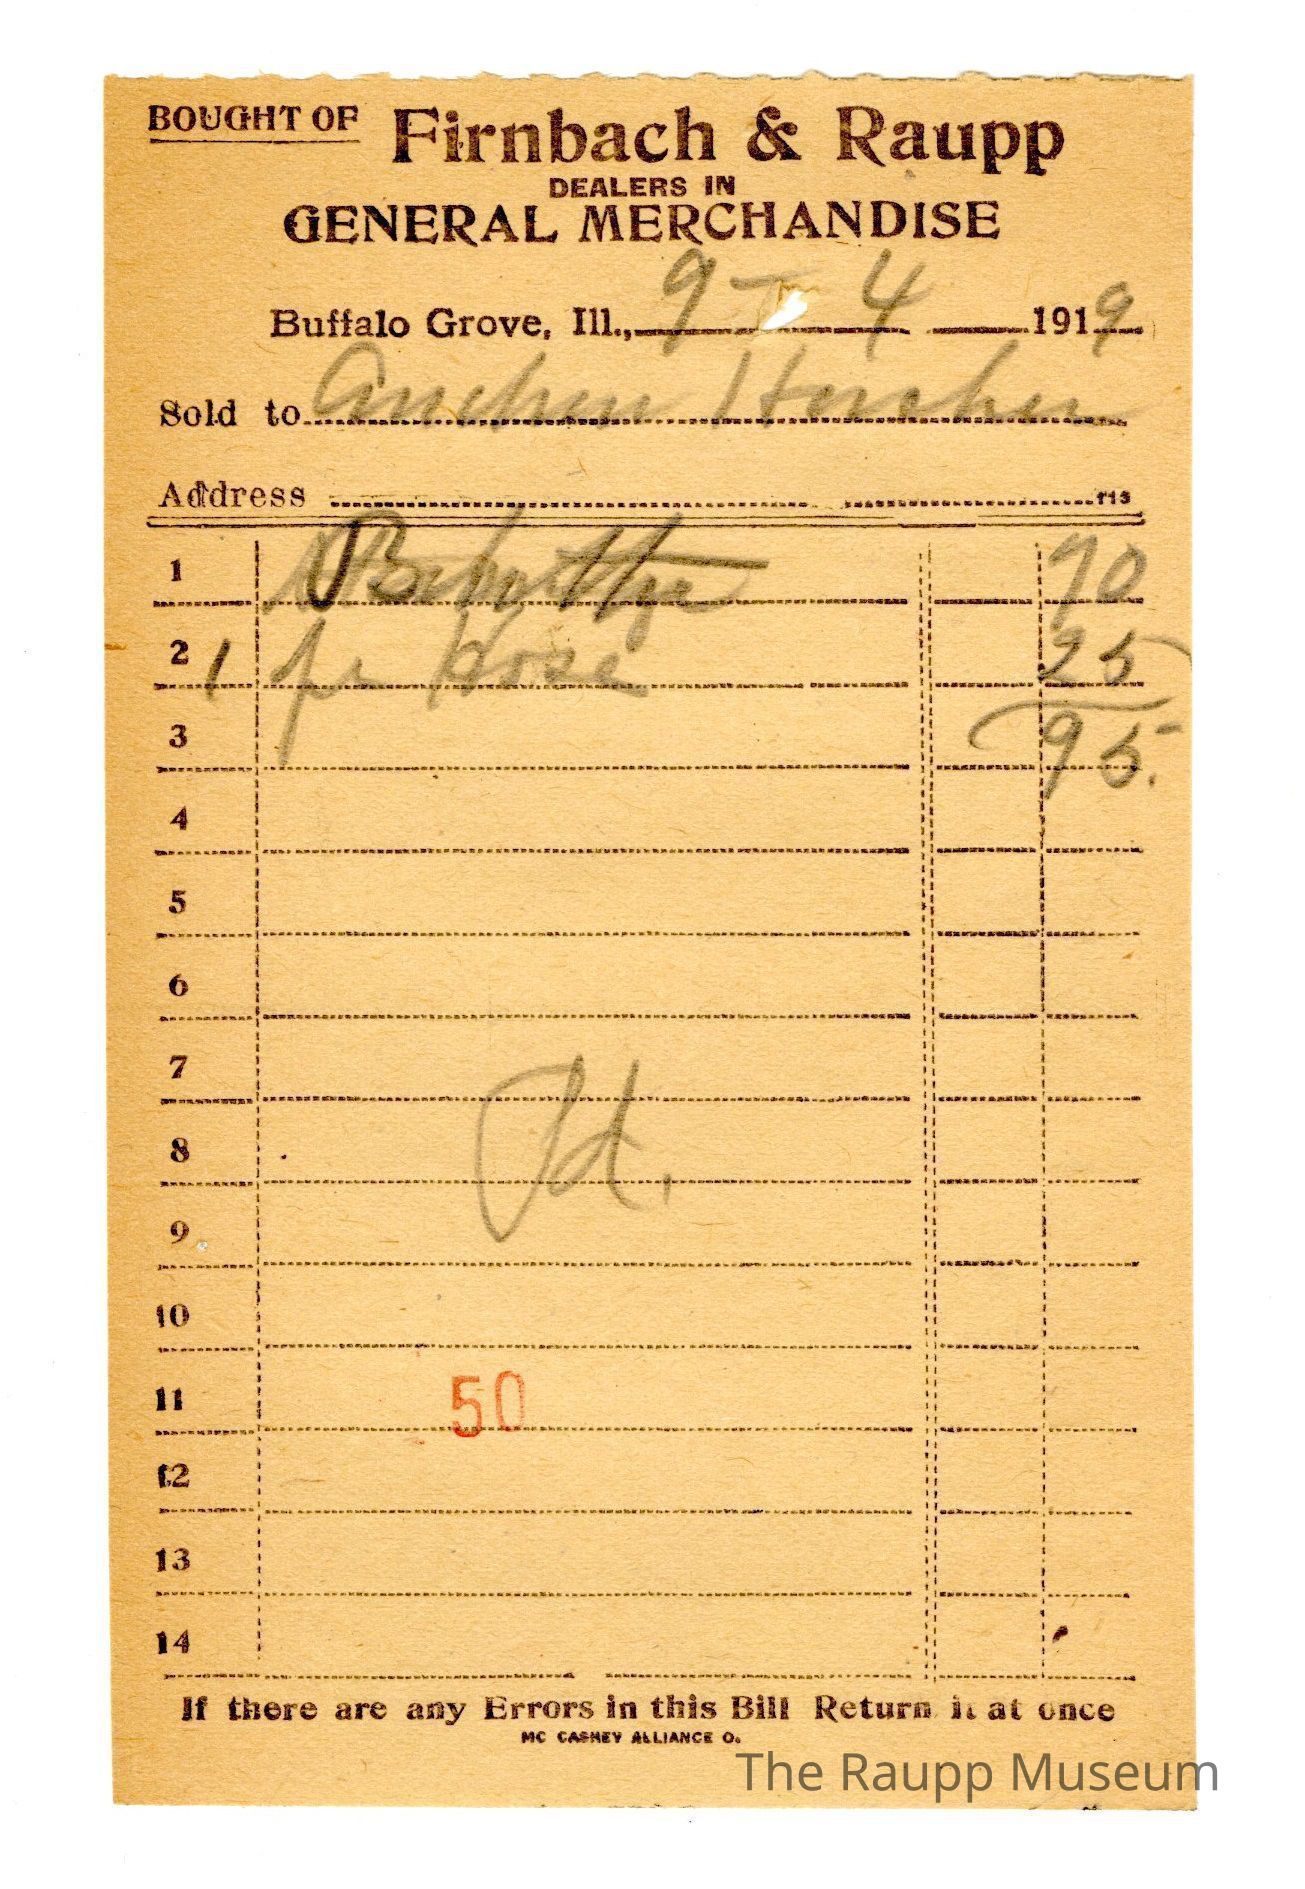 BOUGHT OF Firnbach & Raupp
DEALERS IN
GENERAL MERCHANDISE
Buffalo Grove, Ill., 9 - 4 1919
Sold to
Address 113
1 70
2 1 pr Hose 25
3 95
4
5
6
7
8
9
10
11 50
12
13
14
If there are any Errors in this Bill Return it at once
MC CASKEY ALLIANCE O.
The Raupp Museum